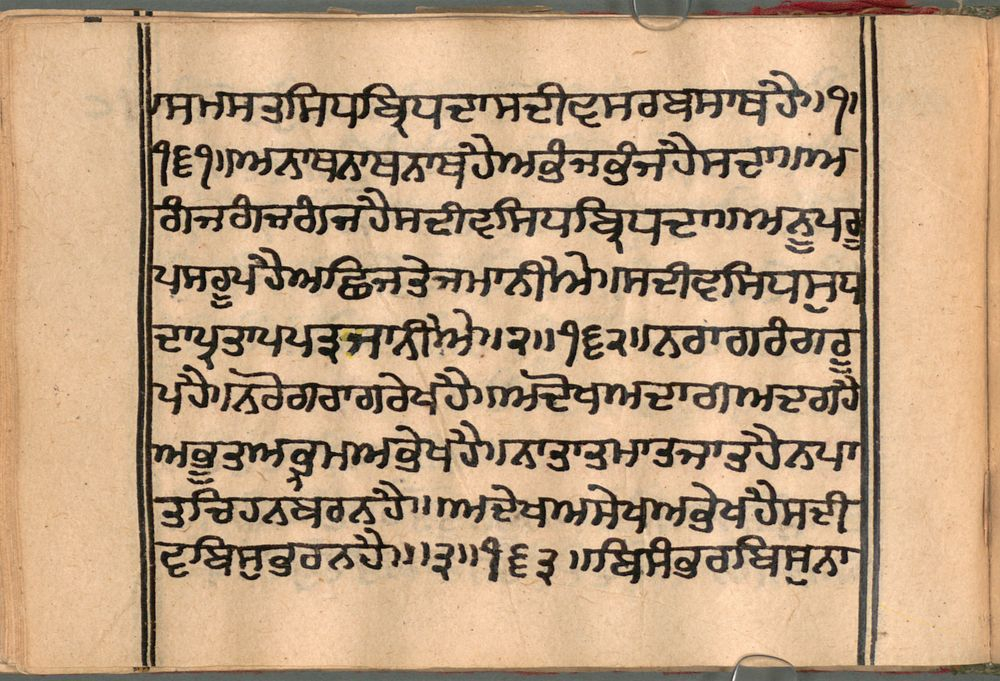 ਸਮਸਤੁਸਿਧਬ੍ਰਿਧਦਾਸਦੀਵਸਰਬਸਾਥਹੈ॥੧॥
੧੬੧॥ਅਨਾਥਨਾਥਨਾਥਹੈਅਭੰਜਭੰਜਹੈਸਦਾ॥ਅ
ਗੰਜਗੰਜਗੰਜਹੈਸਦੀਵਸਿਧਬ੍ਰਿਧਦਾ॥ਅਨੂਪਰੂ
ਪਸਰੂਪਹੈਅਛਿਜਤੇਜਮਾਨੀਐ॥ਸਦੀਵਸਿਧਸੁਧ
ਦਾਪ੍ਰਤਾਪਪਤ੍ਰਜਾਨੀਐ॥੨॥੧੬੨॥ਨਰਾਗਰੰਗਰੂ
ਪਹੈ॥ਨਰੋਗਰਾਗਰੇਖਹੈ॥ਅਦੋਖਅਦਾਗਅਦਗਹੈ
ਅਭੂਤਅਭ੍ਰਮਅਭੇਖਹੈ॥ਨਾਤਾਤਮਾਤਜਾਤਹੈਨਪਾ
ਤਚਿਹਨਬਰਨਹੈ॥ਅਦੇਖਅਸੇਖਅਭੇਖਹੈਸਦੀ
ਵਬਿਸੁਭਰਨਹੈ॥੩॥੧੬੩॥ਬਿਸੰਭਰਬਿਸੁਨਾ